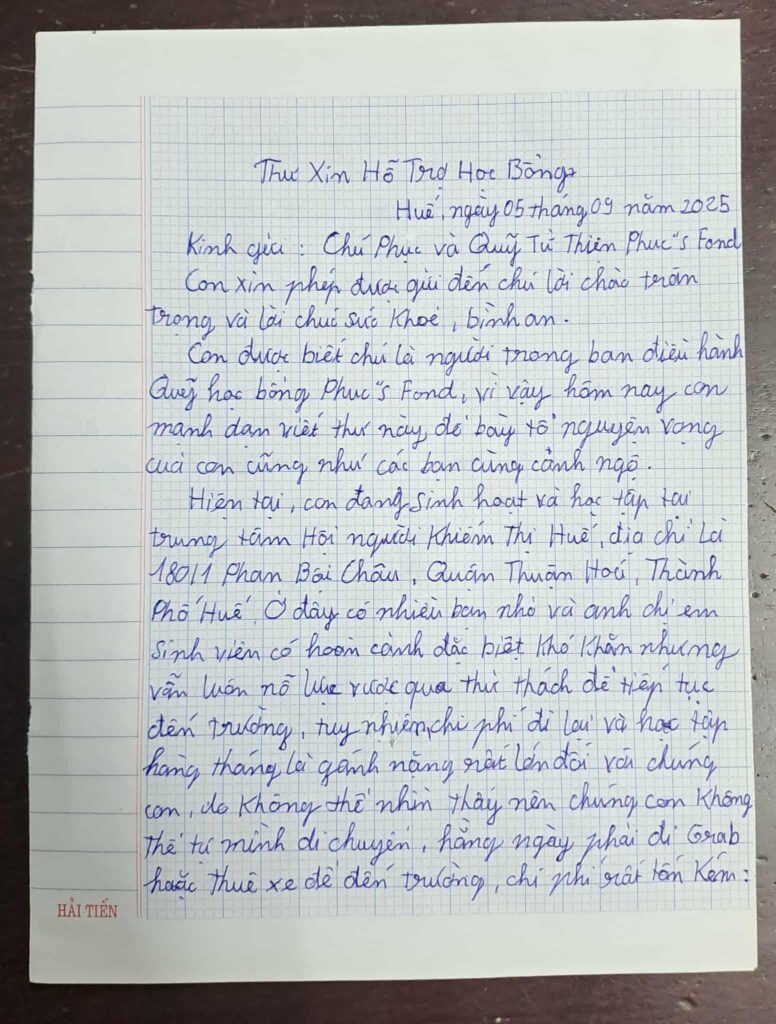 Thư Xin Hỗ Trợ Học Bổng
Huế, ngày 05 tháng 09 năm 2025
Kính gửi : Chú Phục và Quỹ Từ Thiện Phuc"s Fond
Con xin phép được gửi đến chú lời chào trân
trọng và lời chúc sức khoẻ, bình an.
Con được biết chú là người trong ban điều hành
Quỹ học bổng Phuc"s Fond, vì vậy hôm nay con
mạnh dạn viết thư này để bày tỏ nguyện vọng
của con cũng như các bạn cùng cảnh ngộ.
Hiện tại, con đang sinh hoạt và học tập tại
trung tâm Hội người Khiếm Thị Huế, địa chỉ là
180/1 Phan Bội Châu, Quận Thuận Hoá, Thành
Phố Huế. Ở đây có nhiều bạn nhỏ và anh chị em
sinh viên có hoàn cảnh đặc biệt khó khăn nhưng
vẫn luôn nỗ lực vược qua thử thách để tiếp tục
đến trường, tuy nhiên, chi phí đi lại và học tập
hàng tháng là gánh nặng rất lớn đối với chúng
con, do không thể nhìn thấy nên chúng con không
thể tự mình di chuyển, hằng ngày phải đi Grab
hoặc thuê xe để đến trường, chi phí rất tốn kém:
HẢI TIẾN